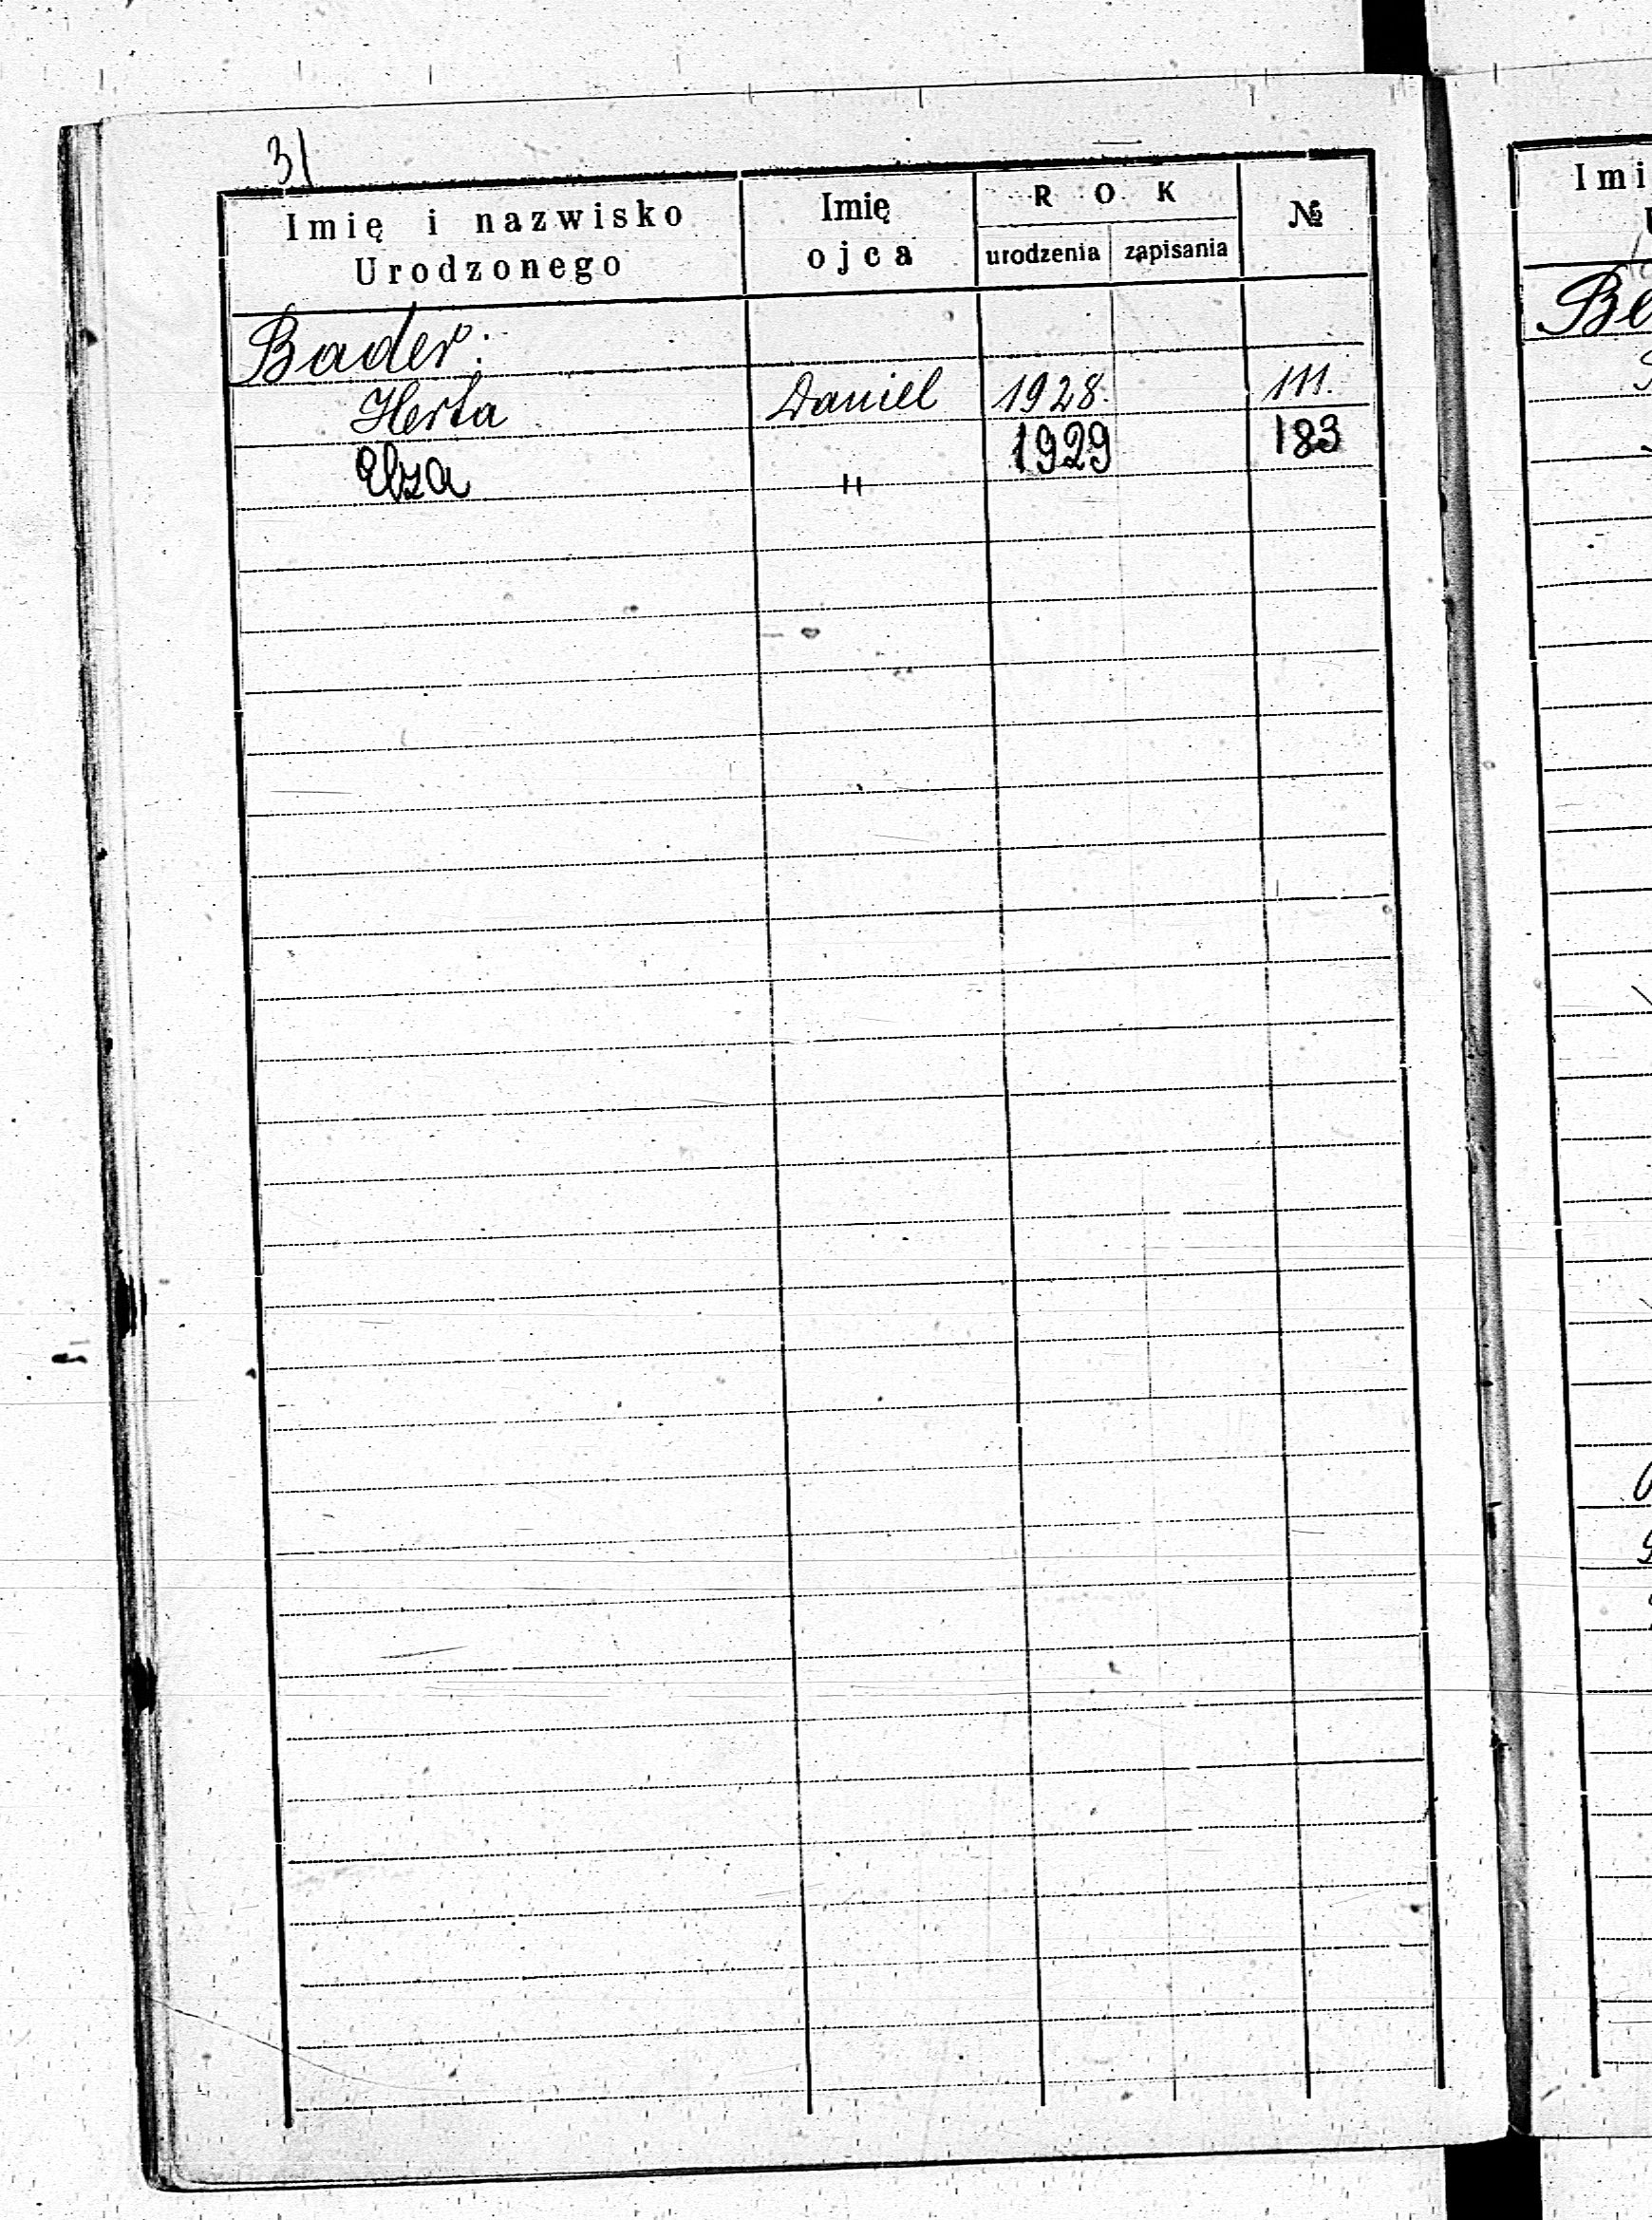 31
Imię i nazwisko Urodzonego Imię ojca ROK urodzenia zapisania №
Bader:
Herta Daniel 1928. 111.
Elza " 1929 183
Imi
Be